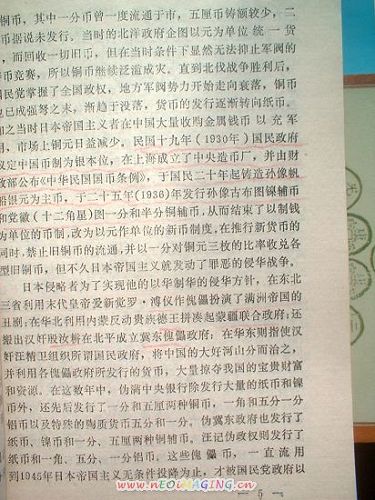 铜币，其中一分币曾一度流通于市，五厘币铸额较少，二
币据说未发行。当时的北洋政府企图以元为单位统一货
，而回收一切旧币，但在当时条件下显然无法抑止军阀的
币竞赛，所以铜币继续泛滥成灾。直到北伐战争胜利后，
国民党掌握了全国政权，地方军阀势力开始走向衰落，铜币
也已成强弩之末，渐趋于没落，货币的发行逐渐转向纸币。
加之当时日本帝国主义者在中国大量收购金属钱币以充军
用，市场上铜元日益减少。民国十九年(1930年)国民政府
议定中国币制为银本位，在上海成立了中央造币厂，并由财
政部公布《中华民国国币条例》，于民国二十年起铸造孙像帆
船银元为主币，于二十五年(1936)年发行孙像古布图镍辅币
和党徽(十二角星)图一分和半分铜辅币，从而结束了以制钱
为单位的币制，改为以元作单位的新币制度，在推行新货币的
同时，禁止旧铜币的流通，并以一分对铜元三枚的比率收兑各
型旧铜币，但不久日本帝国主义就发动了罪恶的侵华战争。
日本侵略者为了实现他的以华制华的侵略方针，在东北
三省利用末代皇帝爱新觉罗·溥仪作傀儡扮演了满洲帝国的
丑剧；在华北利用内蒙反动贵族德王拼凑起蒙疆联合政府；还
搬出汉奸殷汝耕在北平成立冀东傀儡政府；在华东则指使汉
奸汪精卫组织所谓国民政府，将中国的大好河山分而治之，
并利用各傀儡政府所发行的货币，大量掠夺我国的宝贵财富
和资源。在这数年中，伪满中央银行除发行大量的纸币和镍
币外，还先后发行了一分和五厘两种铜币，一角和五分一分
铝币以及特殊的陶质货币五分和一分。伪冀东政府也发行了
纸币、镍币和一分、五厘两种铜辅币。汪记伪政权则发行了
纸币和一角、五分、一分铝币。这些傀儡币，一直流用
到1945年日本帝国主义无条件投降为止，才被国民党政府以
www.nEOiMAGING.cn